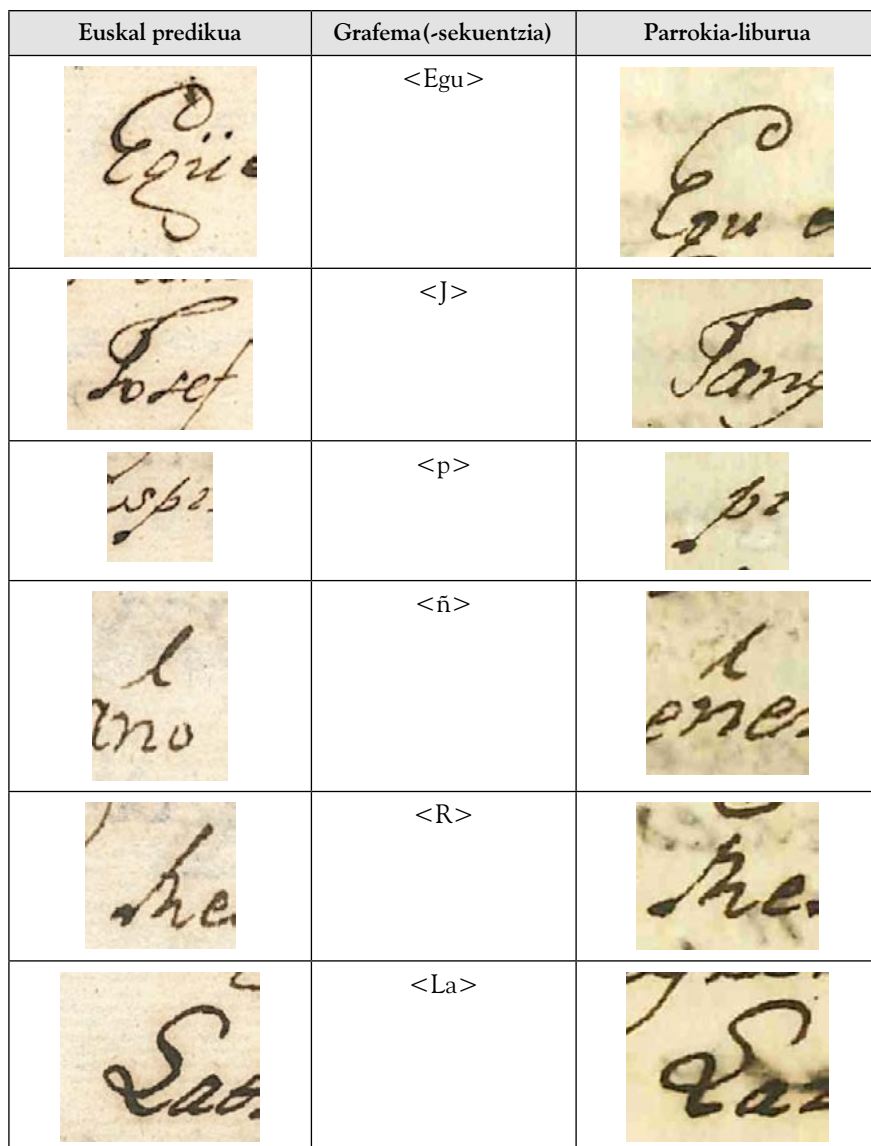 Euskal predikua Grafema(-sekuentzia) Parrokia-liburua
Egüe <Egu> Egu e
Josef <J> Jang
spi <p> pi
ano <ñ> ene
<R>
Lab <La> Laz